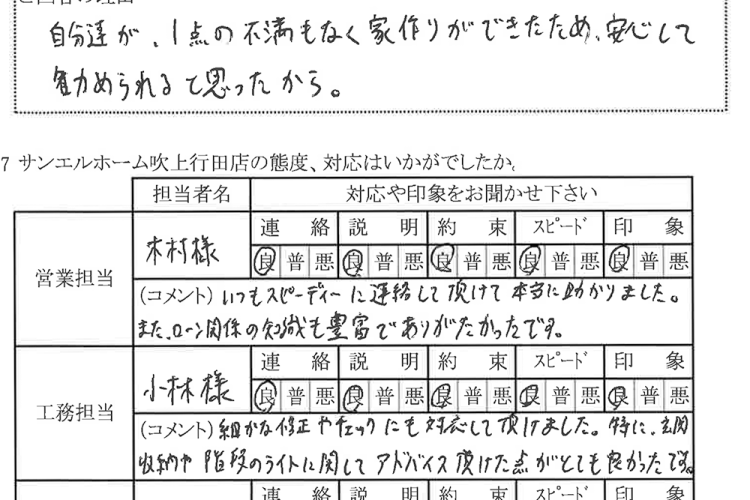 ご回答の理由
自分達が、1点の不満もなく家作りができたため、安心して
勧められると思ったから。
7 サンエルホーム吹上行田店の態度、対応はいかがでしたか。
担当者名 対応や印象をお聞かせ下さい
営業担当 木村様 連絡 説明 約束 スピード 印象
良 普 悪 良 普 悪 良 普 悪 良 普 悪 良 普 悪
(コメント) いつもスピーディーに連絡して頂けて本当に助かりました。
また、ローン関係の知識も豊富でありがたかったです。
工務担当 小林様 連絡 説明 約束 スピード 印象
良 普 悪 良 普 悪 良 普 悪 良 普 悪 良 普 悪
(コメント) 細かな修正やチェックにも対応して頂けました。特に、玄関
収納や階段のライトに関してアドバイス頂けた点がとても良かったです。
連絡 説明 約束 スピード 印象